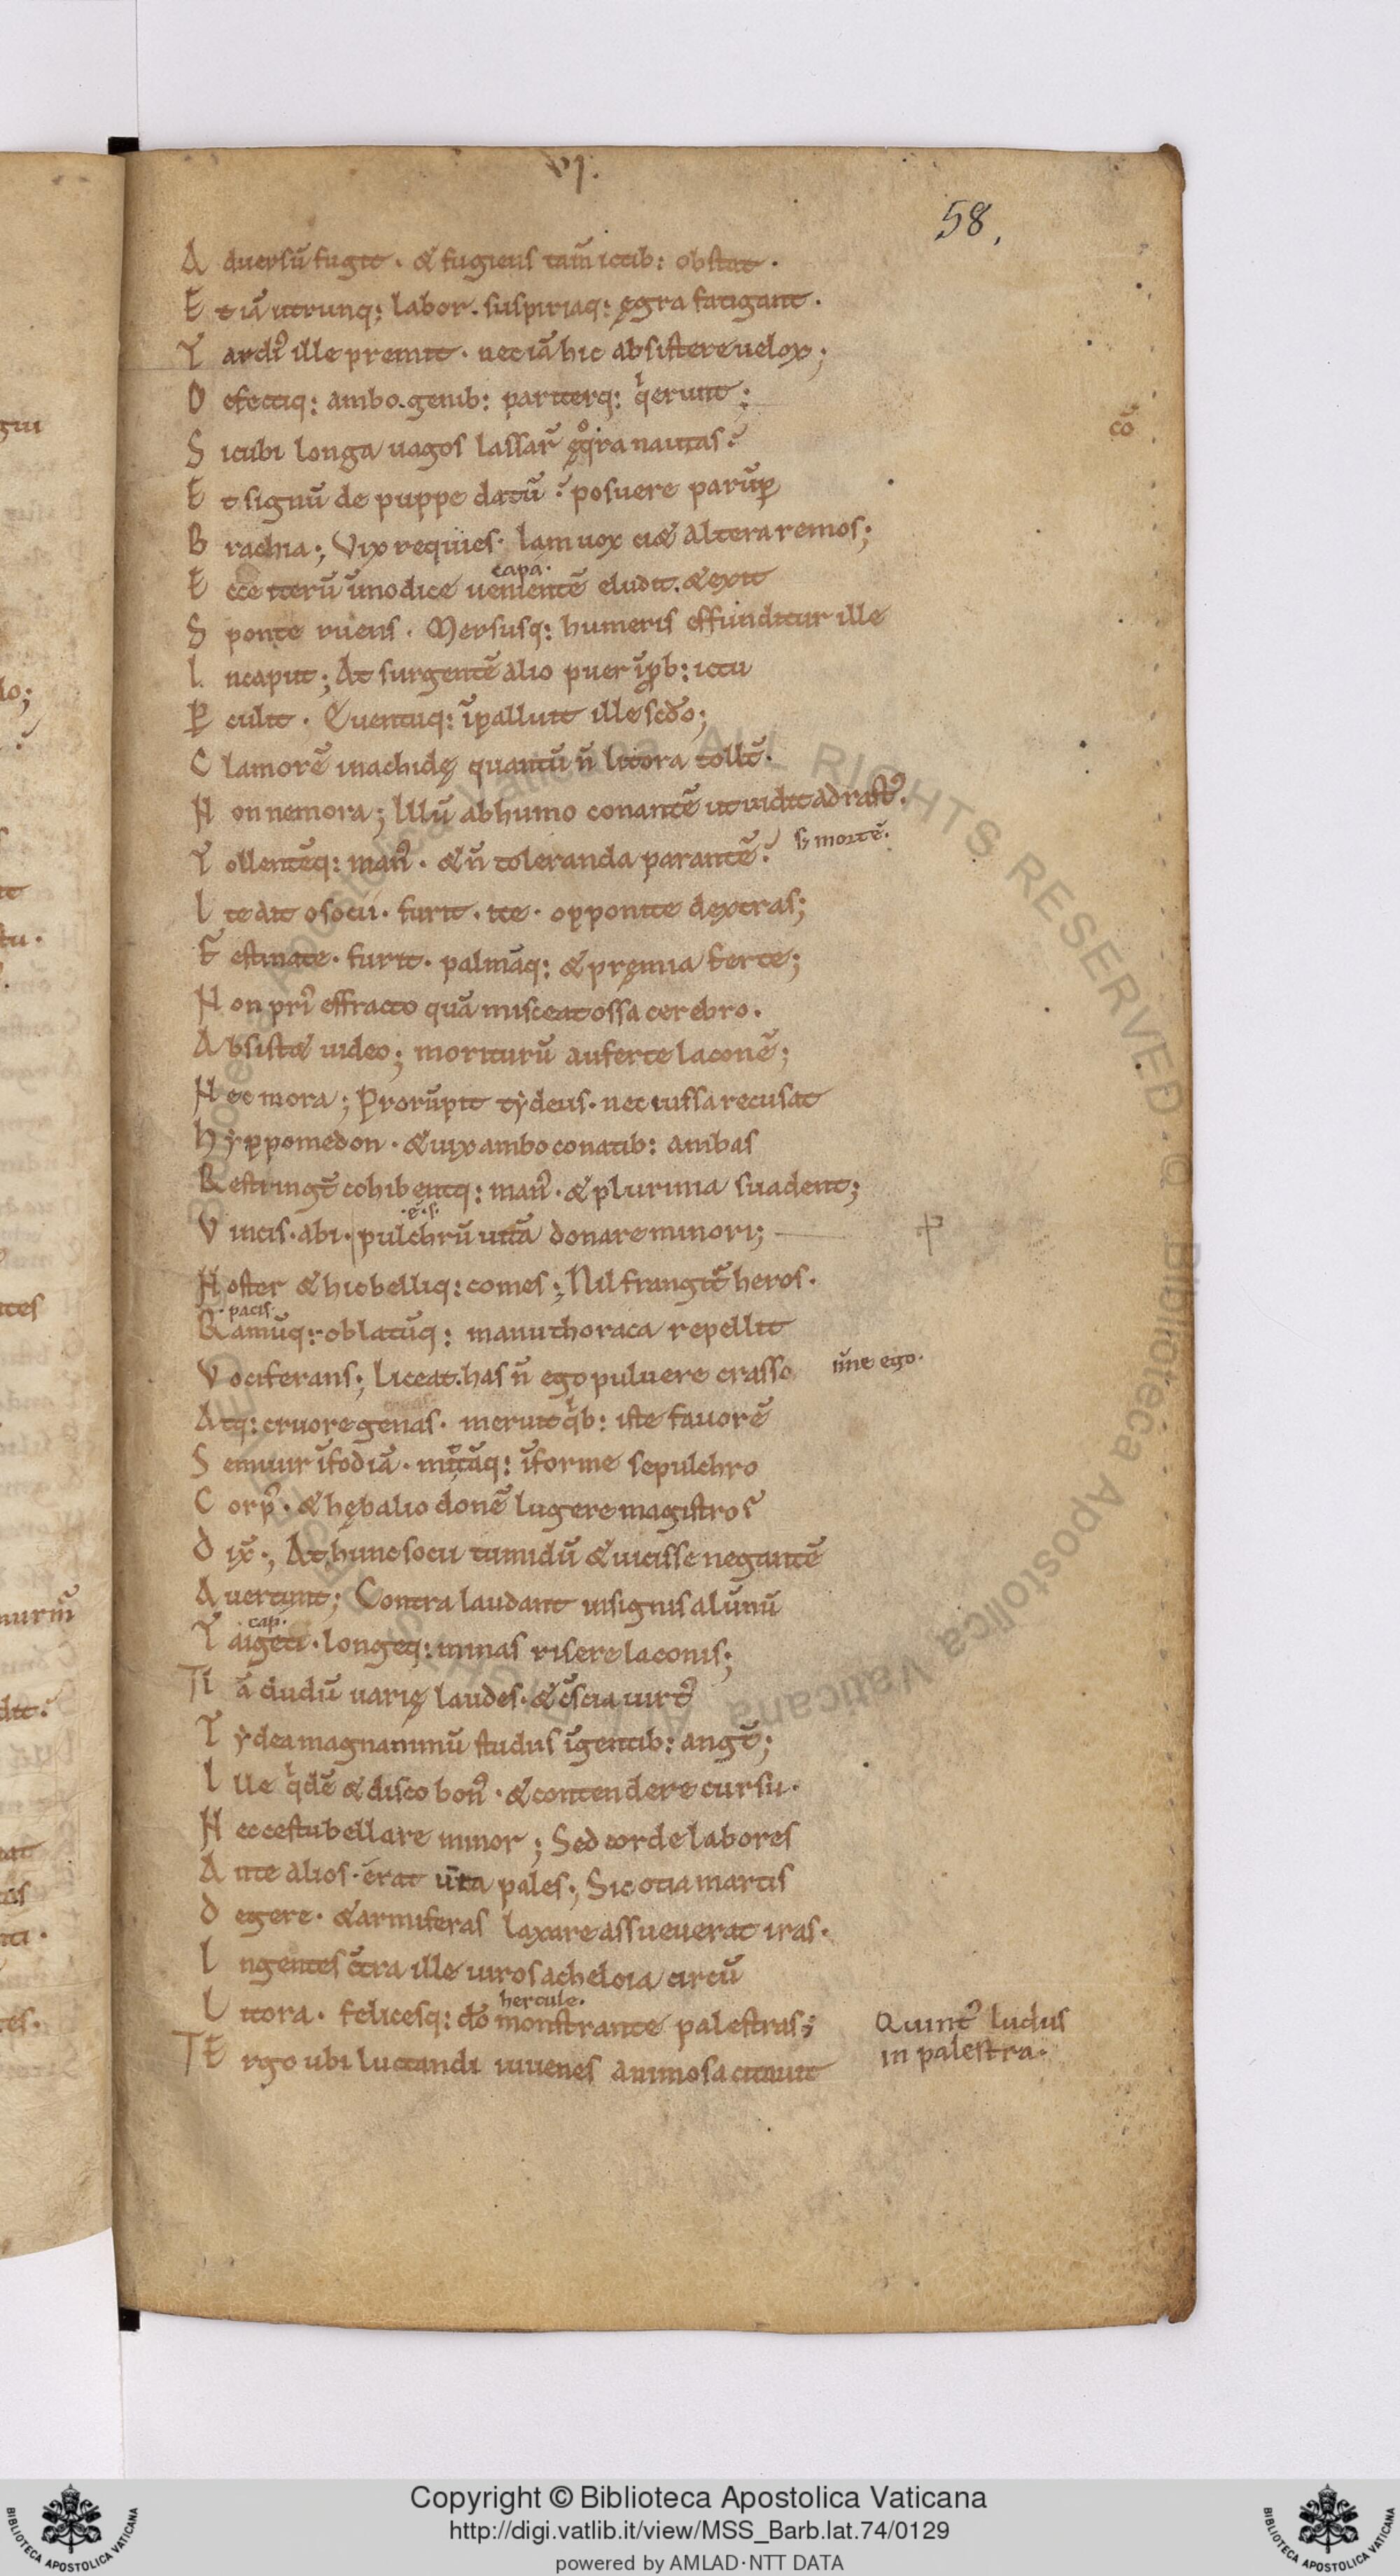 vj.
58.
A duersū fugit . & fugiens tam̄ ictib: obstat .
E t iā utrunq: labor . suspiriaq: ęgra fatigant .
T ardi᷒ ille premit . nec iā hic absistere uelox ;
D efectiq: ambo . genib: pariterq: qͥerunt ;
S icubi longa uagos lassar̄ ęqͦra nautas .
E t signū de puppe datū posuere parūp
B rachia ; Vix requies . Iam uox ci& altera remos ;
capa .
E cce iterū īmodice uenientē eludit . & exit
S ponte ruens . Mersusq: humeris effunditur ille
I n caput ; At surgentē alio puer īprob: ictu
P culit . Euentuq: īpalluit ille scd̄o ;
C lamorē inachidę quantū n̄ litora tollt̄ .
N on nemora ; Illū ab humo conantē ut uidit adrast᷒ .
T ollentēq: man᷒ . & n̄ toleranda parantē .
s; mortē .
I te ait o socii . furit . ite . opponite dextras ;
F estinate . furit . palmāq: & pręmia ferte ;
N on pri᷒ effracto quā misceat ossa cerebro .
A bsist& uideo ; moriturū auferte laconē ;
N ec mora ; Prorūpit tẏdeus . nec iussa recusat
H ẏppomedon . & uix ambo conatib: ambas
R estringt̄ cohibentq: man᷒ . & plurima suadent ;
. ē . s .
V incis . abi . pulchrū uitā donare minori ;
N oster & hic belliq: comes ; Nil frangit᷑ heros .
. pacis .
R amūq: oblatūq: manu thoraca repellit
V ociferans ; Liceat . has n̄ ego puluere crasso
ńne ego .
A tq: cruore genas . meruit qͥb: iste fauorē
S emiuir īfodiā . mittāq: īforme sepulchro
C orp᷒ . & hębalio donē lugere magistro
D ix̄ ; At hunc socii tumidū & uicisse negantē
A uertunt ; Contra laudant insignis alūnū
cap .
T aigeti . longeq: minas risere laconis ;
TI ā dudū uarię laudes . & c̄scia uirt᷒
T ẏdea magnanimū studiis īgentib: angt̄ ;
I lle qͥdē & disco bon᷒ . & contendere cursu .
N ec cestu bellare minor ; Sed corde labores
A nte alios . erat ūcta pales ; Sic otia martis
D egere . & armiferas laxare assueuerat iras .
I ngentes c̄tra ille uiros acheloia circū
hercule .
L itora . felicesq: do᷒ monstrante palestras ;
TE rgo ubi luctandi iuuenes animosa citauit
Quint᷒ ludus
in palestra .
cō
Copyright © Biblioteca Apostolica Vaticana
http://digi.vatlib.it/view/MSS_Barb.lat.74/0129
powered by AMLAD·NTT DATA